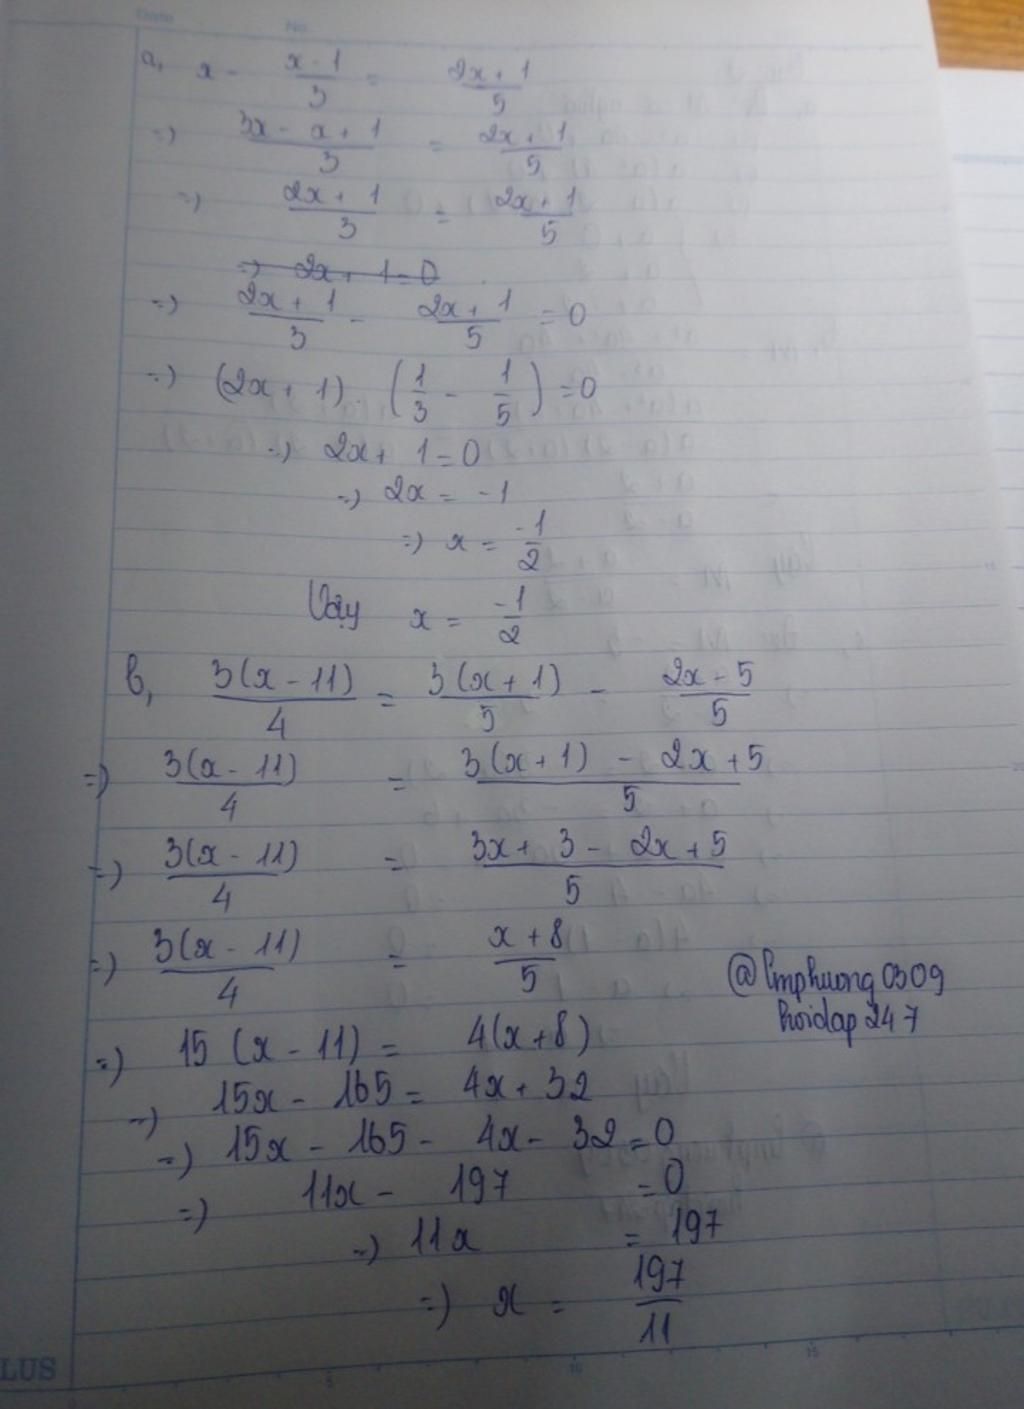 Date No.
a, x - \frac{x-1}{3} = \frac{2x+1}{5}
=) \frac{3x-x+1}{3} = \frac{2x+1}{5}
=) \frac{2x+1}{3} = \frac{2x+1}{5}
=) 2x+1=0
=) \frac{2x+1}{3} - \frac{2x+1}{5} = 0
=) (2x+1). (\frac{1}{3} - \frac{1}{5}) = 0
=) 2x+1=0
=) 2x = -1
=) x = \frac{-1}{2}
Vậy x = \frac{-1}{2}
b, \frac{3(x-11)}{4} = \frac{3(x+1)}{5} - \frac{2x-5}{5}
=) \frac{3(x-11)}{4} = \frac{3(x+1)-2x+5}{5}
=) \frac{3(x-11)}{4} = \frac{3x+3-2x+5}{5}
=) \frac{3(x-11)}{4} = \frac{x+8}{5}
@lmphuong0309
hoidap247
=) 15(x-11) = 4(x+8)
=) 15x-165 = 4x+32
=) 15x-165-4x-32=0
=) 11x-197 =0
=) 11x = 197
=) x = \frac{197}{11}
LUS 5 10 15